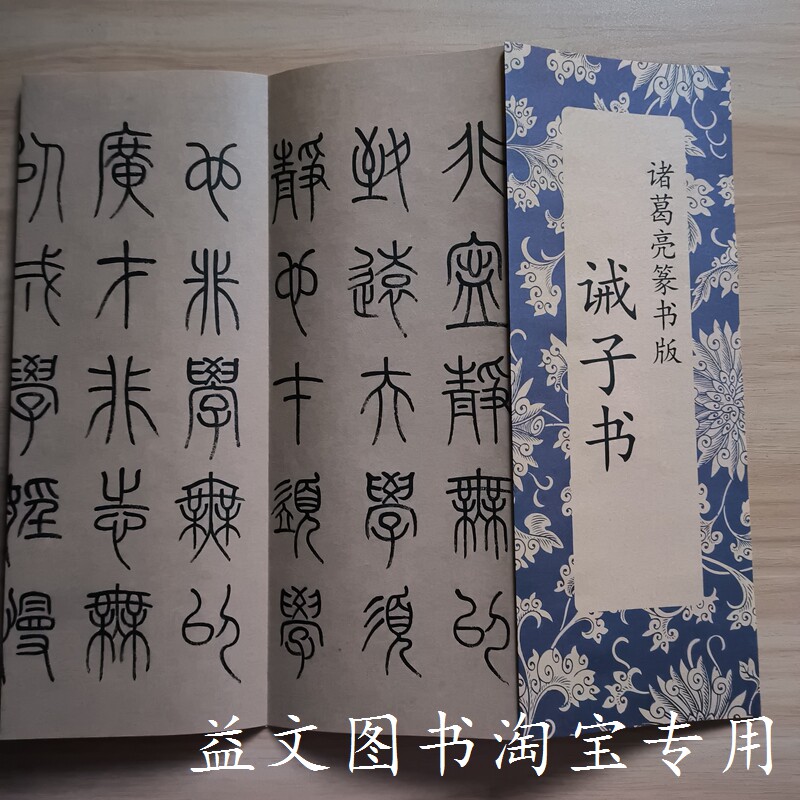 诸葛亮篆书版
诫子书
非寧靜無以
致遠夫學須
靜也才須學
也非學無以
廣才非志無
以成學婬慢
益文图书淘宝专用